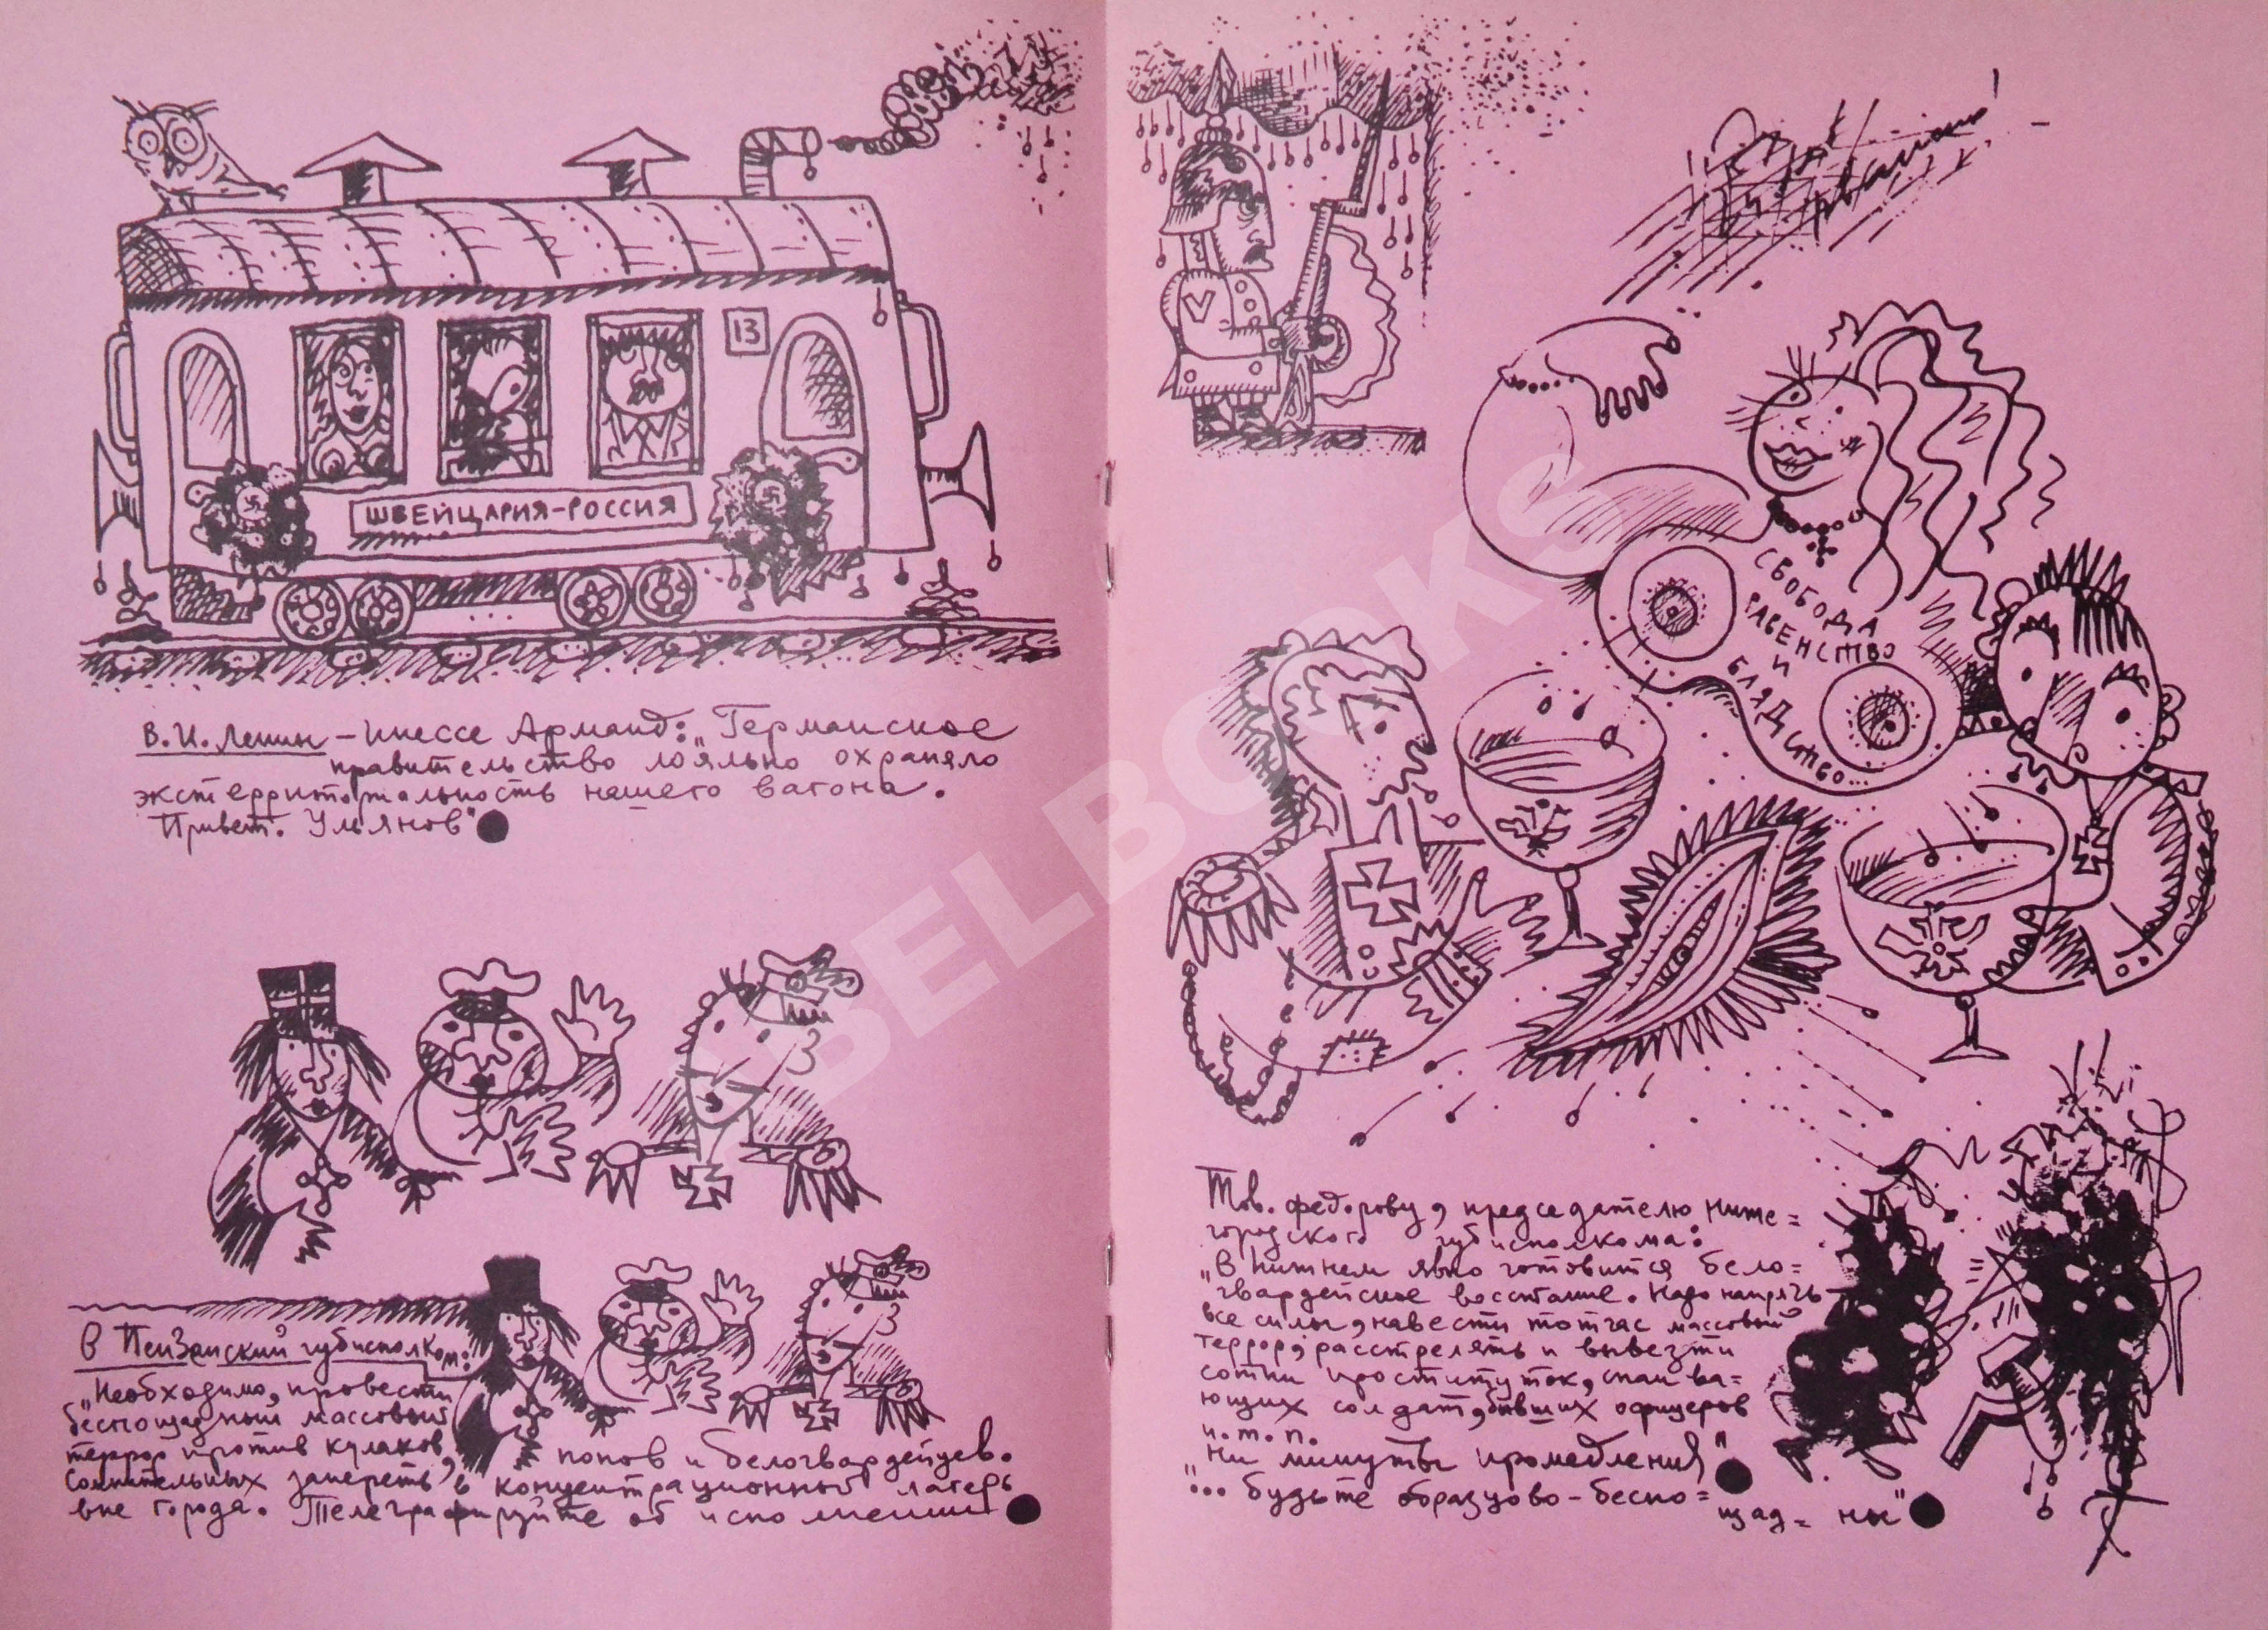 13
ШВЕЙЦАРИЯ-РОССИЯ
В.И. Ленин – Инессе Арманд: „Германское
правительство лояльно охраняло
экстерриториальность нашего вагона.
Привет. Ульянов"
В Пензенский губисполком:
„Необходимо, провести
беспощадный массовый
террор против кулаков,
попов и белогвардейцев.
Сомнительных запереть в концентрационный лагерь
вне города. Телеграфируйте об исполнении"
СВОБОДА
РАВЕНСТВО
И
БЛЯДСТВО...
Тов. Федорову, председателю Ниже=
городского губисполкома:
„В Нижнем явно готовится бело=
гвардейское восстание. Надо напрячь
все силы, навести тотчас массовый
террор, расстрелять и вывезти
сотни проституток, спаива=
ющих солдат, бывших офицеров
и.т.п.
Ни минуты промедления"
"... будьте образцово-беспо=
щад= ны"
BELBOOKS